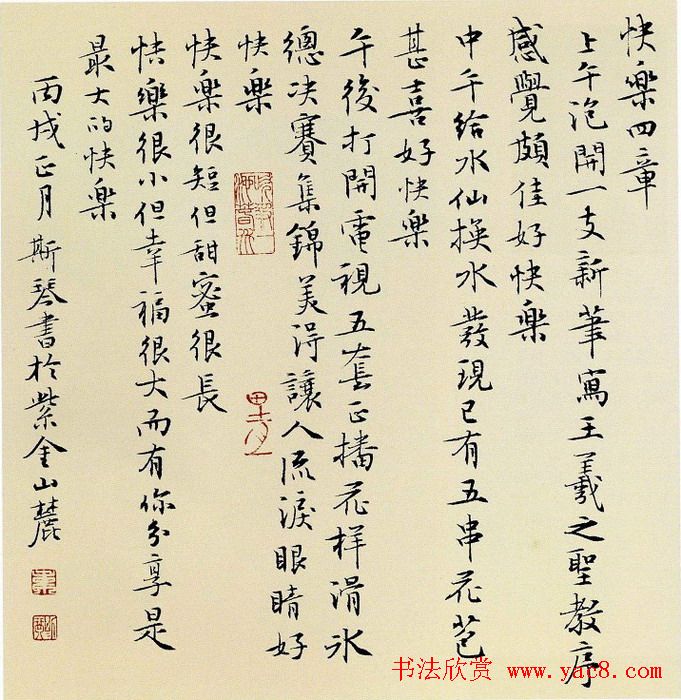 快樂四章
上午泡開一支新筆寫王羲之聖教序
感覺頗佳好快樂
中午給水仙換水發現已有五串花苞
甚喜好快樂
午後打開電視五套正播花样滑冰
總決賽集錦美得讓人流淚眼睛好
快樂
快樂很短但甜蜜很長
快樂很小但幸福很大而有你分享是
最大的快樂
丙戌正月斯琴書於紫金山麓
书法欣赏 www.yac8.com